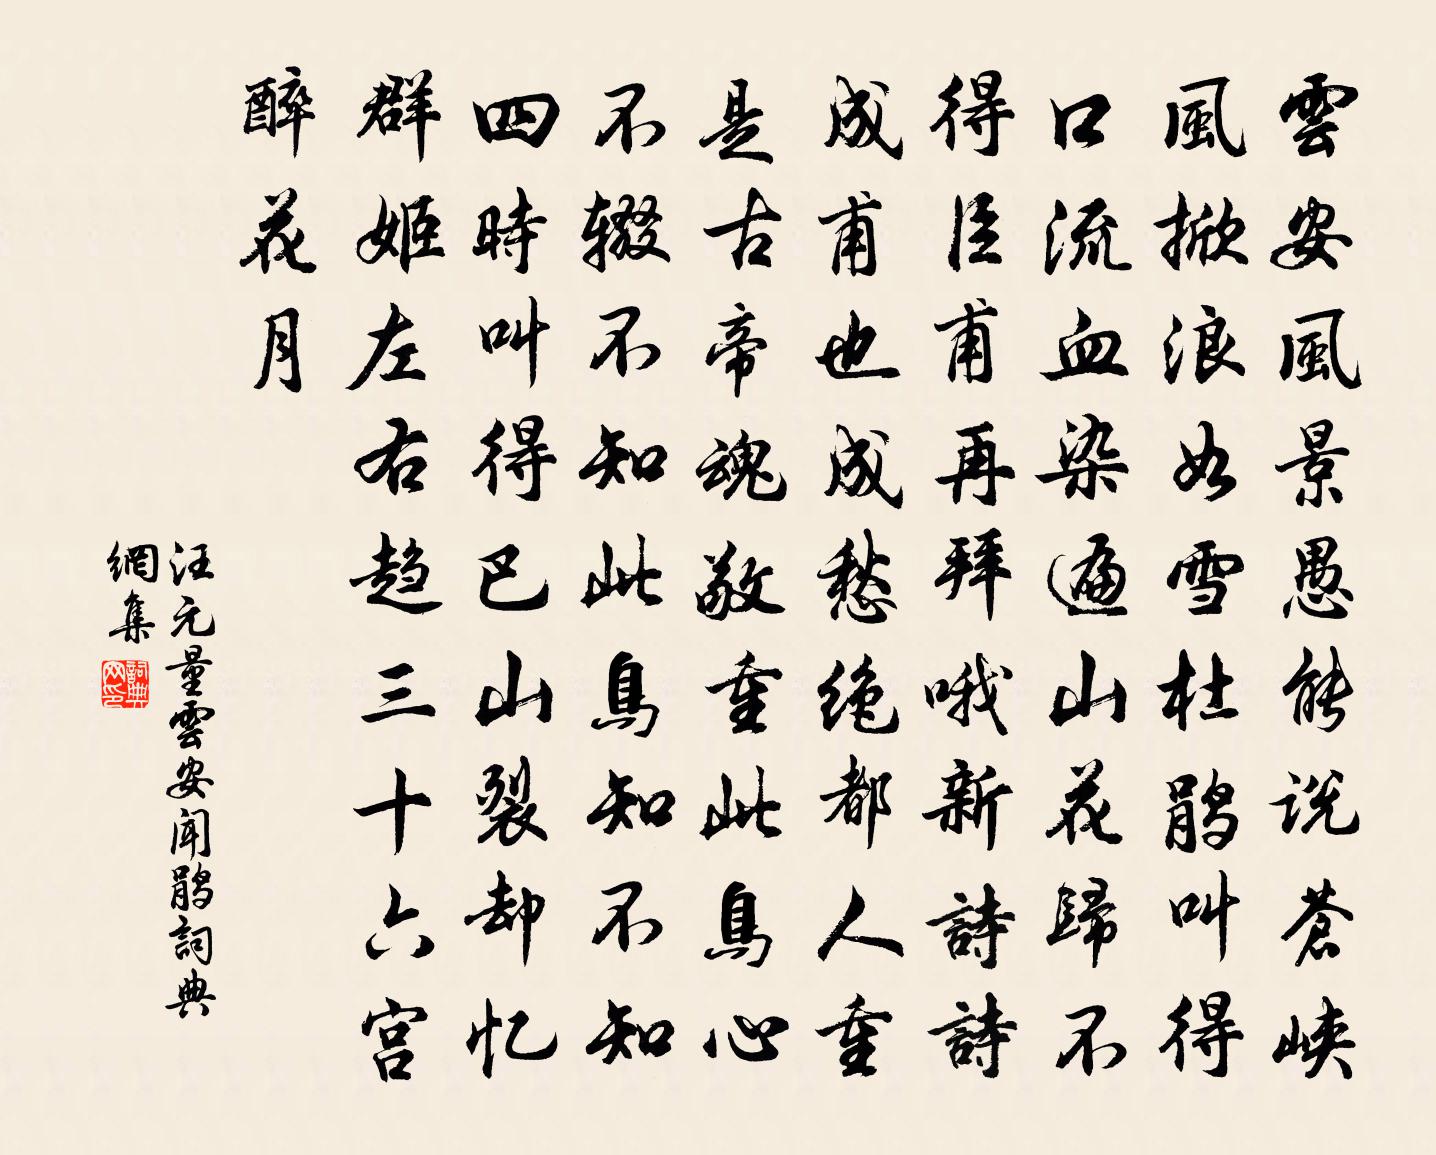 雲安風景愚能说蒼峡
風掀浪如雪杜鹃叫得
口流血染遍山花歸不
得臣甫再拜哦新詩詩
成甫也成愁绝都人重
是古帝魂敬重此鳥心
不辍不知此鳥知不知
四時叫得巴山裂却忆
群姬左右趋三十六宫
醉花月
汪元量雲安闻鹃詞典
網集
詞典
网印